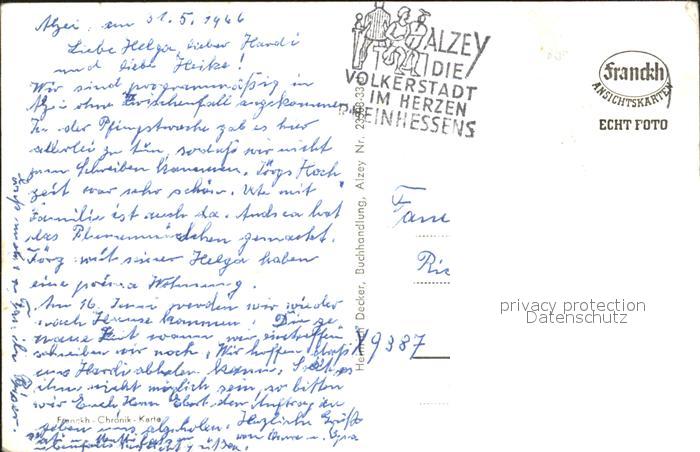 Alzei, am 31.5.1966
Liebe Helga, lieber Hardi
und liebe Heike!
Wir sind programmäßig in
Alzei ohne Zwischenfall angekommen
In der Pfingstwoche gab es hier
allerlei zu tun, sodaß wir nicht
zum Schreiben kamen. Jörgs Hoch
zeit war sehr schön. Ute mit
Familie ist auch da. Andrea hat
das Blumenmädchen gemacht.
Jörg mit seiner Helga haben
eine prima Wohnung.
Am 16. Juni werden wir wieder
nach Hause kommen. Die ge
naue Zeit wann wir eintreffen
schreiben wir noch. Wir hoffen, daß
uns Hardi abholen kann. Sollte es
ihm nicht möglich sein, so bitten
wir Euch Herrn den Auftrag zu
geben uns abzuholen. Herzliche Grüße
von Oma u. Opa
ALZEY
DIE
VOLKERSTADT
IM HERZEN
RHEINHESSENS
Franckh
ANSICHTSKARTEN
ECHT FOTO
Heinrich Decker, Buchhandlung, Alzey Nr.
Fam
X9387
privacy protection
Datenschutz
Franckh-Chronik-Karte